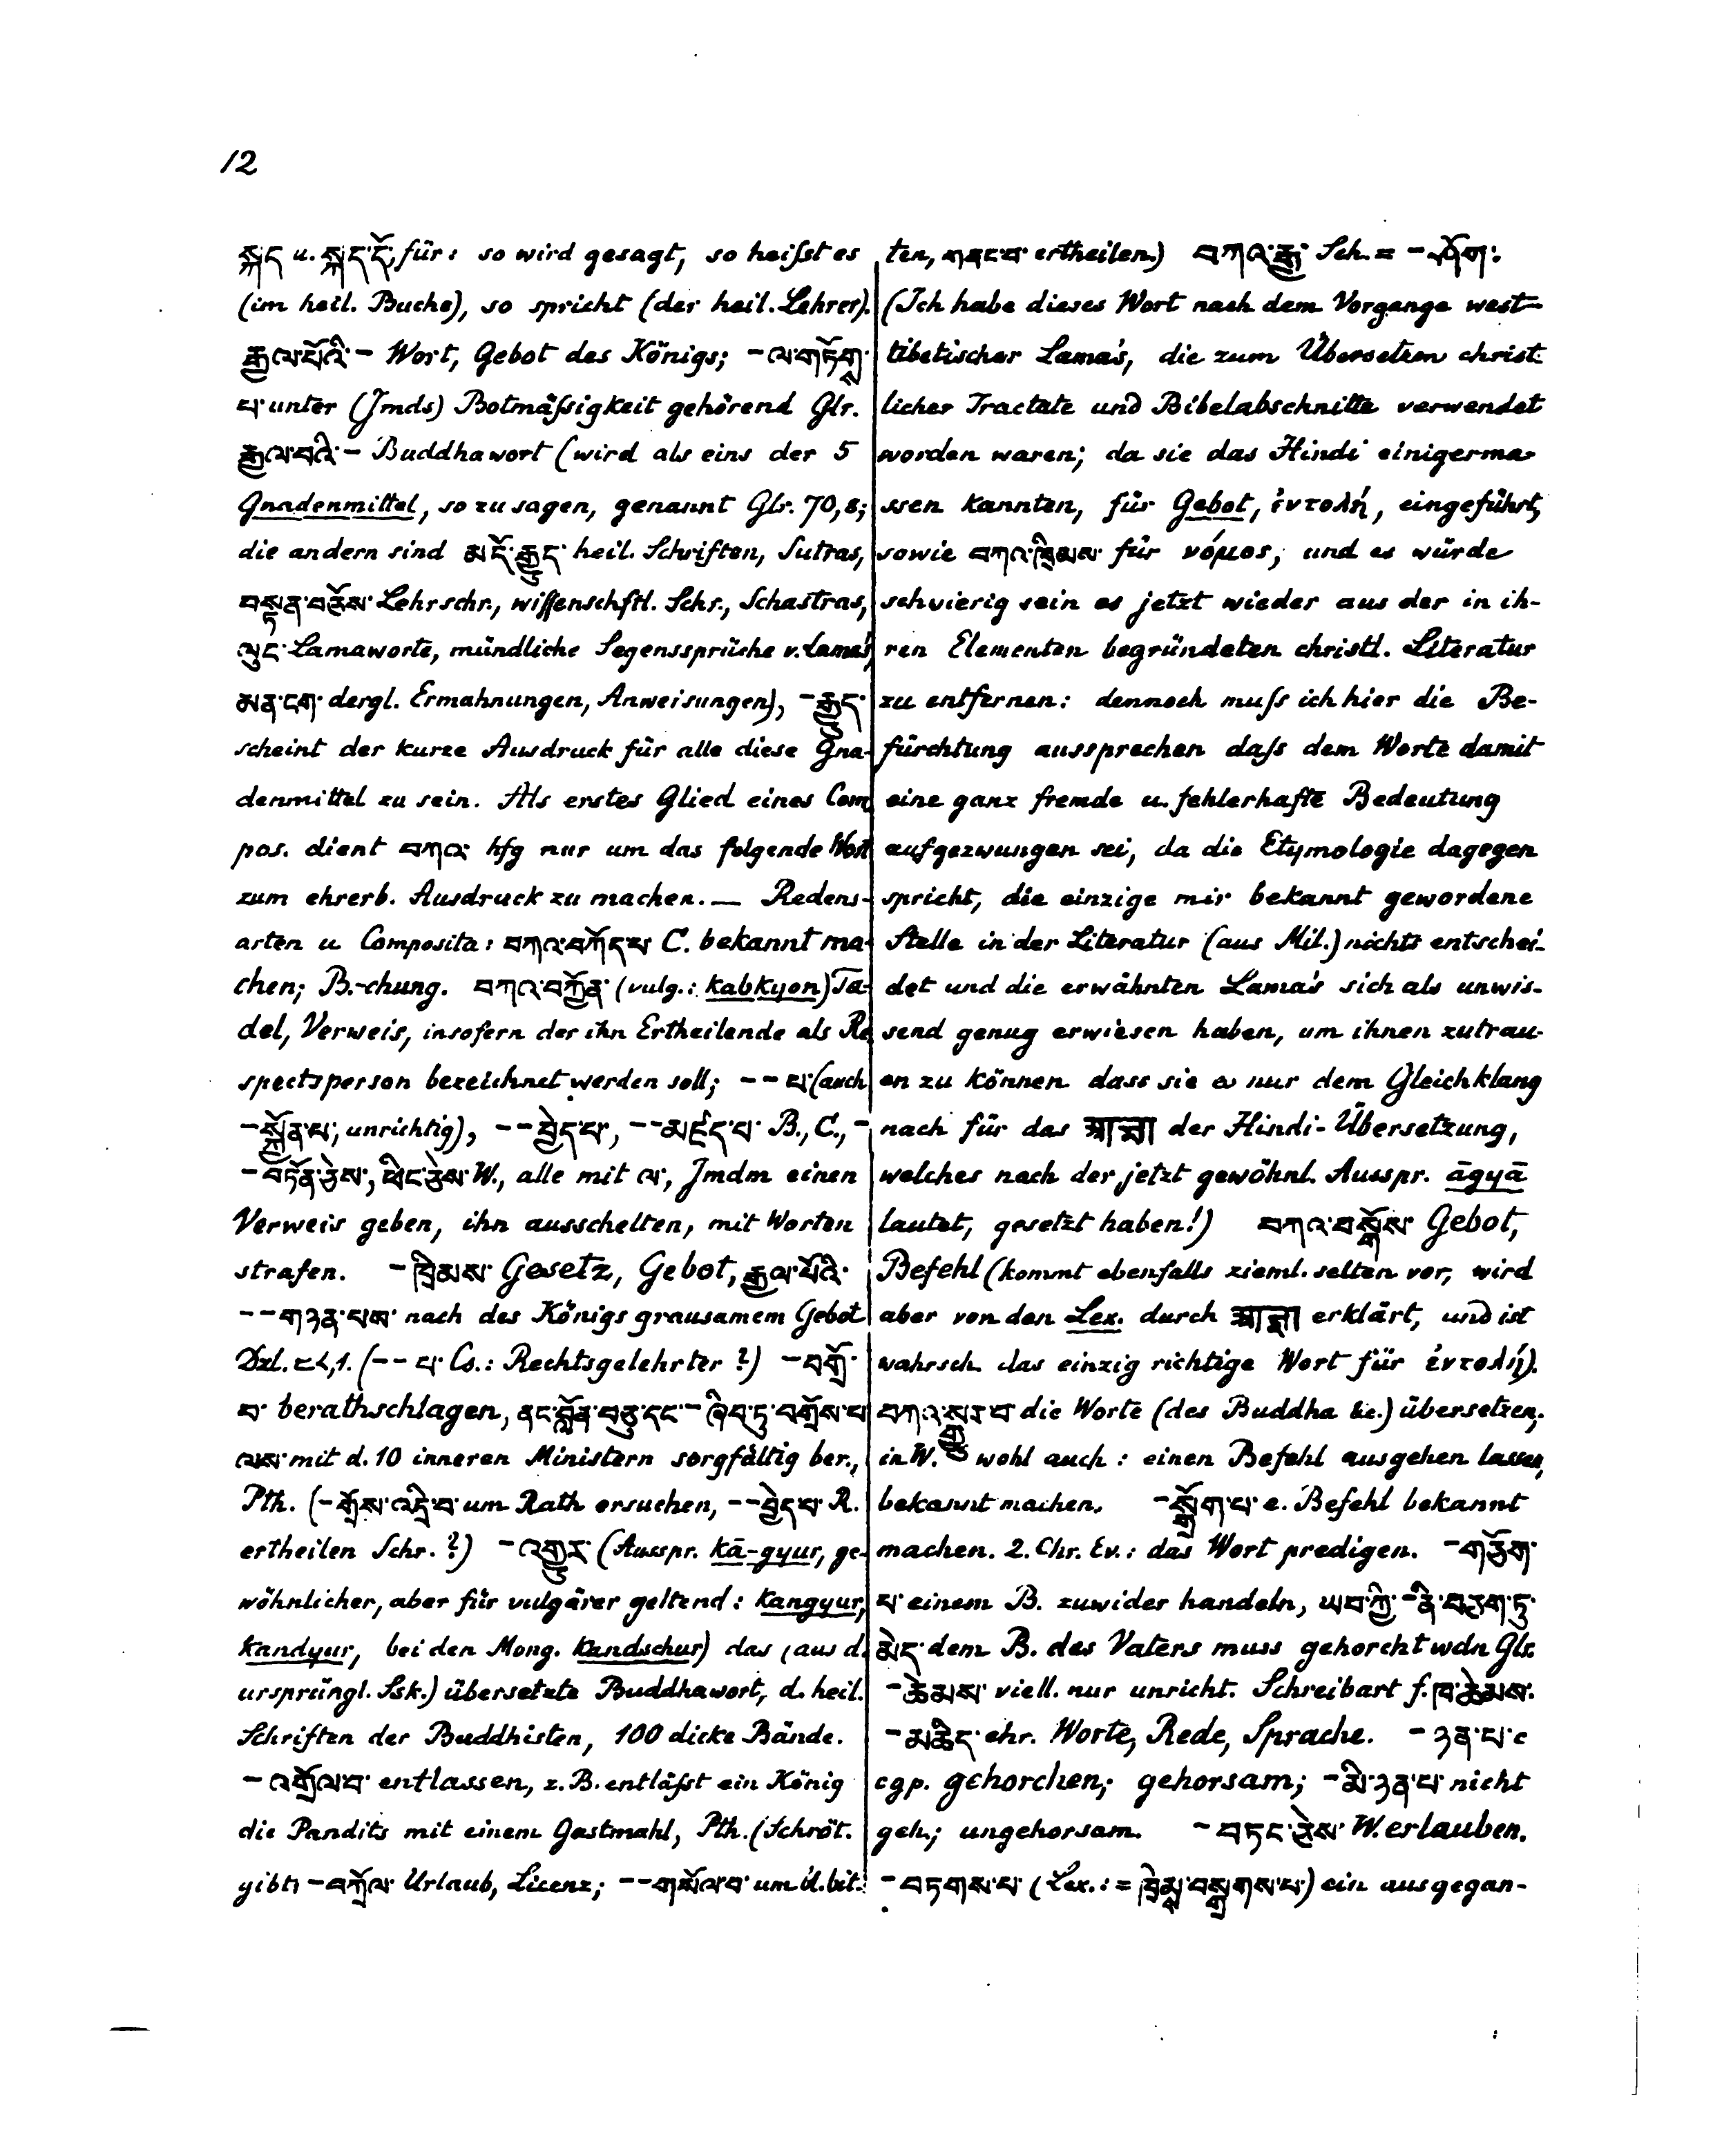 12
སྐད u. སྐད་དོ, für: so wird gesagt, so heißt es
(im heil. Buche), so spricht (der heil. Lehrer).
རྒྱལ་པོའི་ – Wort, Gebot des Königs; – ལ་གཏོགས་
པ་ unter (Jmds) Botmäßigkeit gehörend Glr.
རྒྱལ་བའི་ – Buddhawort (wird als eins der 5
Gnadenmittel, so zu sagen, genannt Glr. 70,8;
die andern sind མདོ་རྒྱུད་ heil. Schriften, Sutras,
བསྟན་བཅོས་ Lehrschr., wissenschftl. Schr., Schastras,
ལུང་ Lamaworte, mündliche Segenssprüche v. Lama's,
མན་ངག་ dergl. Ermahnungen, Anweisungen), – རྒྱུད་
scheint der kurze Ausdruck für alle diese Gna-
denmittel zu sein. Als erstes Glied eines Com
pos. dient བཀའ་ hfg nur um das folgende Wort
zum ehrerb. Ausdruck zu machen. — Redens-
arten u Composita: བཀའ་བཀོད་པ C. bekannt ma-
chen; B.-chung. བཀའ་བཀྱོན་ (vulg.: kabkyon) Ta-
del, Verweis, insofern der ihn Ertheilende als Re
spectsperson bezeichnet werden soll; – – པ་ (auch
– སྐྱོན་པ་, unrichtig), – – བྱེད་པ་, – – མཛད་པ་ B., C., –
– བཏོན་ཅེས་, ཕིང་ཅེས་ W., alle mit ལ་, Jmdm einen
Verweis geben, ihn ausschelten, mit Worten
strafen. – ཁྲིམས་ Gesetz, Gebot, རྒྱལ་པོའི་
– – གཉན་པས་ nach des Königs grausamem Gebot
Dzl. ༢༨,1. (– – པ་ Cs.: Rechtsgelehrter ?) – བགྲོ་
བ་ berathschlagen, ནང་བློན་བཅུ་དང་ – ཞིབ་ཏུ་བགྲོས་པ
ལས་ mit d. 10 inneren Ministern sorgfältig ber.,
Pth. (– གྲོས་འདྲི་བ་ um Rath ersuchen, – – བྱེད་པ་ R.
ertheilen Schr. ?) – འགྱུར་ (Ausspr. kā-gyur, ge-
wöhnlicher, aber für vulgärer geltend: kangyur,
kandyur, bei den Mong. kandschur) das (aus d.
ursprüngl. Ssk.) übersetzte Buddhawort, d. heil.
Schriften der Buddhisten, 100 dicke Bände.
– འགྲོལ་བ་ entlassen, z. B. entläßt ein König
die Pandits mit einem Gastmahl, Pth. (Schröt.
gibt: – བཀྲོལ་ Urlaub, Licenz; – – གསོལ་བ་ um U. bit-
ten, གནང་བ་ ertheilen) བཀའ་རྒྱ་ Sch. = – ཤོག་:
(Ich habe dieses Wort nach dem Vorgange west-
tibetischer Lama's, die zum Übersetzen christ-
licher Tractate und Bibelabschnitte verwendet
worden waren; da sie das Hindi einigerma-
ssen kannten, für Gebot, ἐντολή, eingeführt,
sowie བཀའ་ཁྲིམས་ für νόμος, und es würde
schwierig sein es jetzt wieder aus der in ih-
ren Elementen begründeten christl. Literatur
zu entfernen: dennoch muß ich hier die Be-
fürchtung aussprechen daß dem Worte damit
eine ganz fremde u. fehlerhafte Bedeutung
aufgezwungen sei, da die Etymologie dagegen
spricht, die einzige mir bekannt gewordene
Stelle in der Literatur (aus Mil.) nichts entschei-
det und die erwähnten Lama's sich als unwis-
send genug erwiesen haben, um ihnen zutrau-
en zu können dass sie es nur dem Gleichklang
nach für das आज्ञा der Hindi-Übersetzung,
welches nach der jetzt gewöhnl. Ausspr. āgyā
lautet, gesetzt haben!) བཀའ་བསྒོས་ Gebot,
Befehl (kommt ebenfalls zieml. selten vor, wird
aber von den Lex. durch आज्ञा erklärt, und ist
wahrsch. das einzig richtige Wort für ἐντολή).
བཀའ་སྒྱུར་བ die Worte (des Buddha &c.) übersetzen;
in W. wohl auch: einen Befehl ausgehen lassen,
bekannt machen. – སྒྲོག་པ་ e. Befehl bekannt
machen. 2. Chr. Ev.: das Wort predigen. – གཅོག་
པ་ einem B. zuwider handeln, ཡབ་ཀྱི་ – ནི་བཅག་ཏུ་
མེད་ dem B. des Vaters muss gehorcht wdn Glr.
– ཆེམས་ viell. nur unricht. Schreibart f. ཁ་ཆེམས་.
– མཆིད་ ehr. Worte, Rede, Sprache. – ཉན་པ་ c
cgp. gehorchen; gehorsam; – མི་ཉན་པ་ nicht
geh.; ungehorsam. – བཏང་ཅེས་ W. erlauben.
– བཏགས་པ་ (Lex.: = ཁྲིམས་བསྒྲགས་པ་) ein ausgegan-